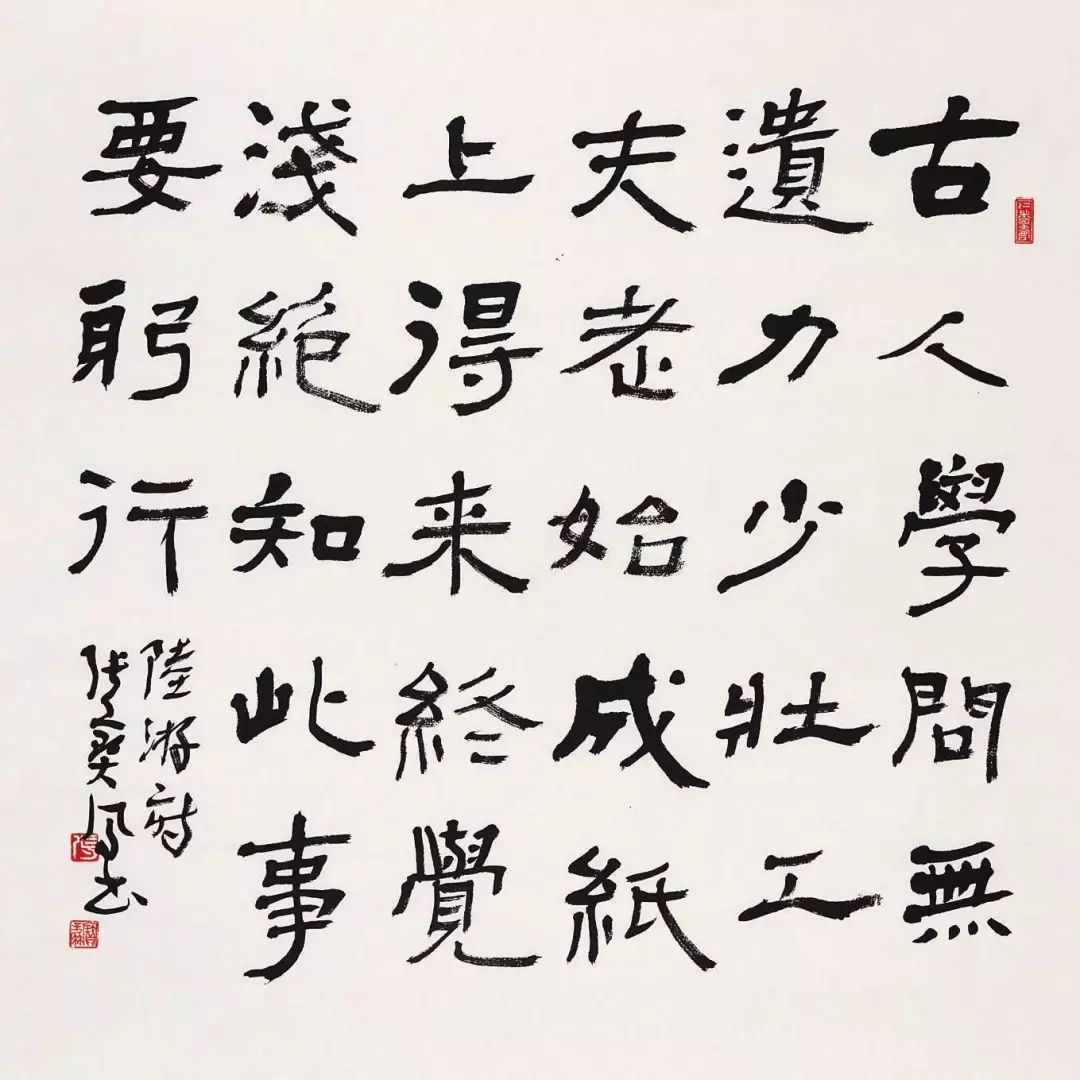 古人學問無
遺力少壯工
夫老始成紙
上得来終覺
淺絕知此事
要躬行
陸游詩
张书